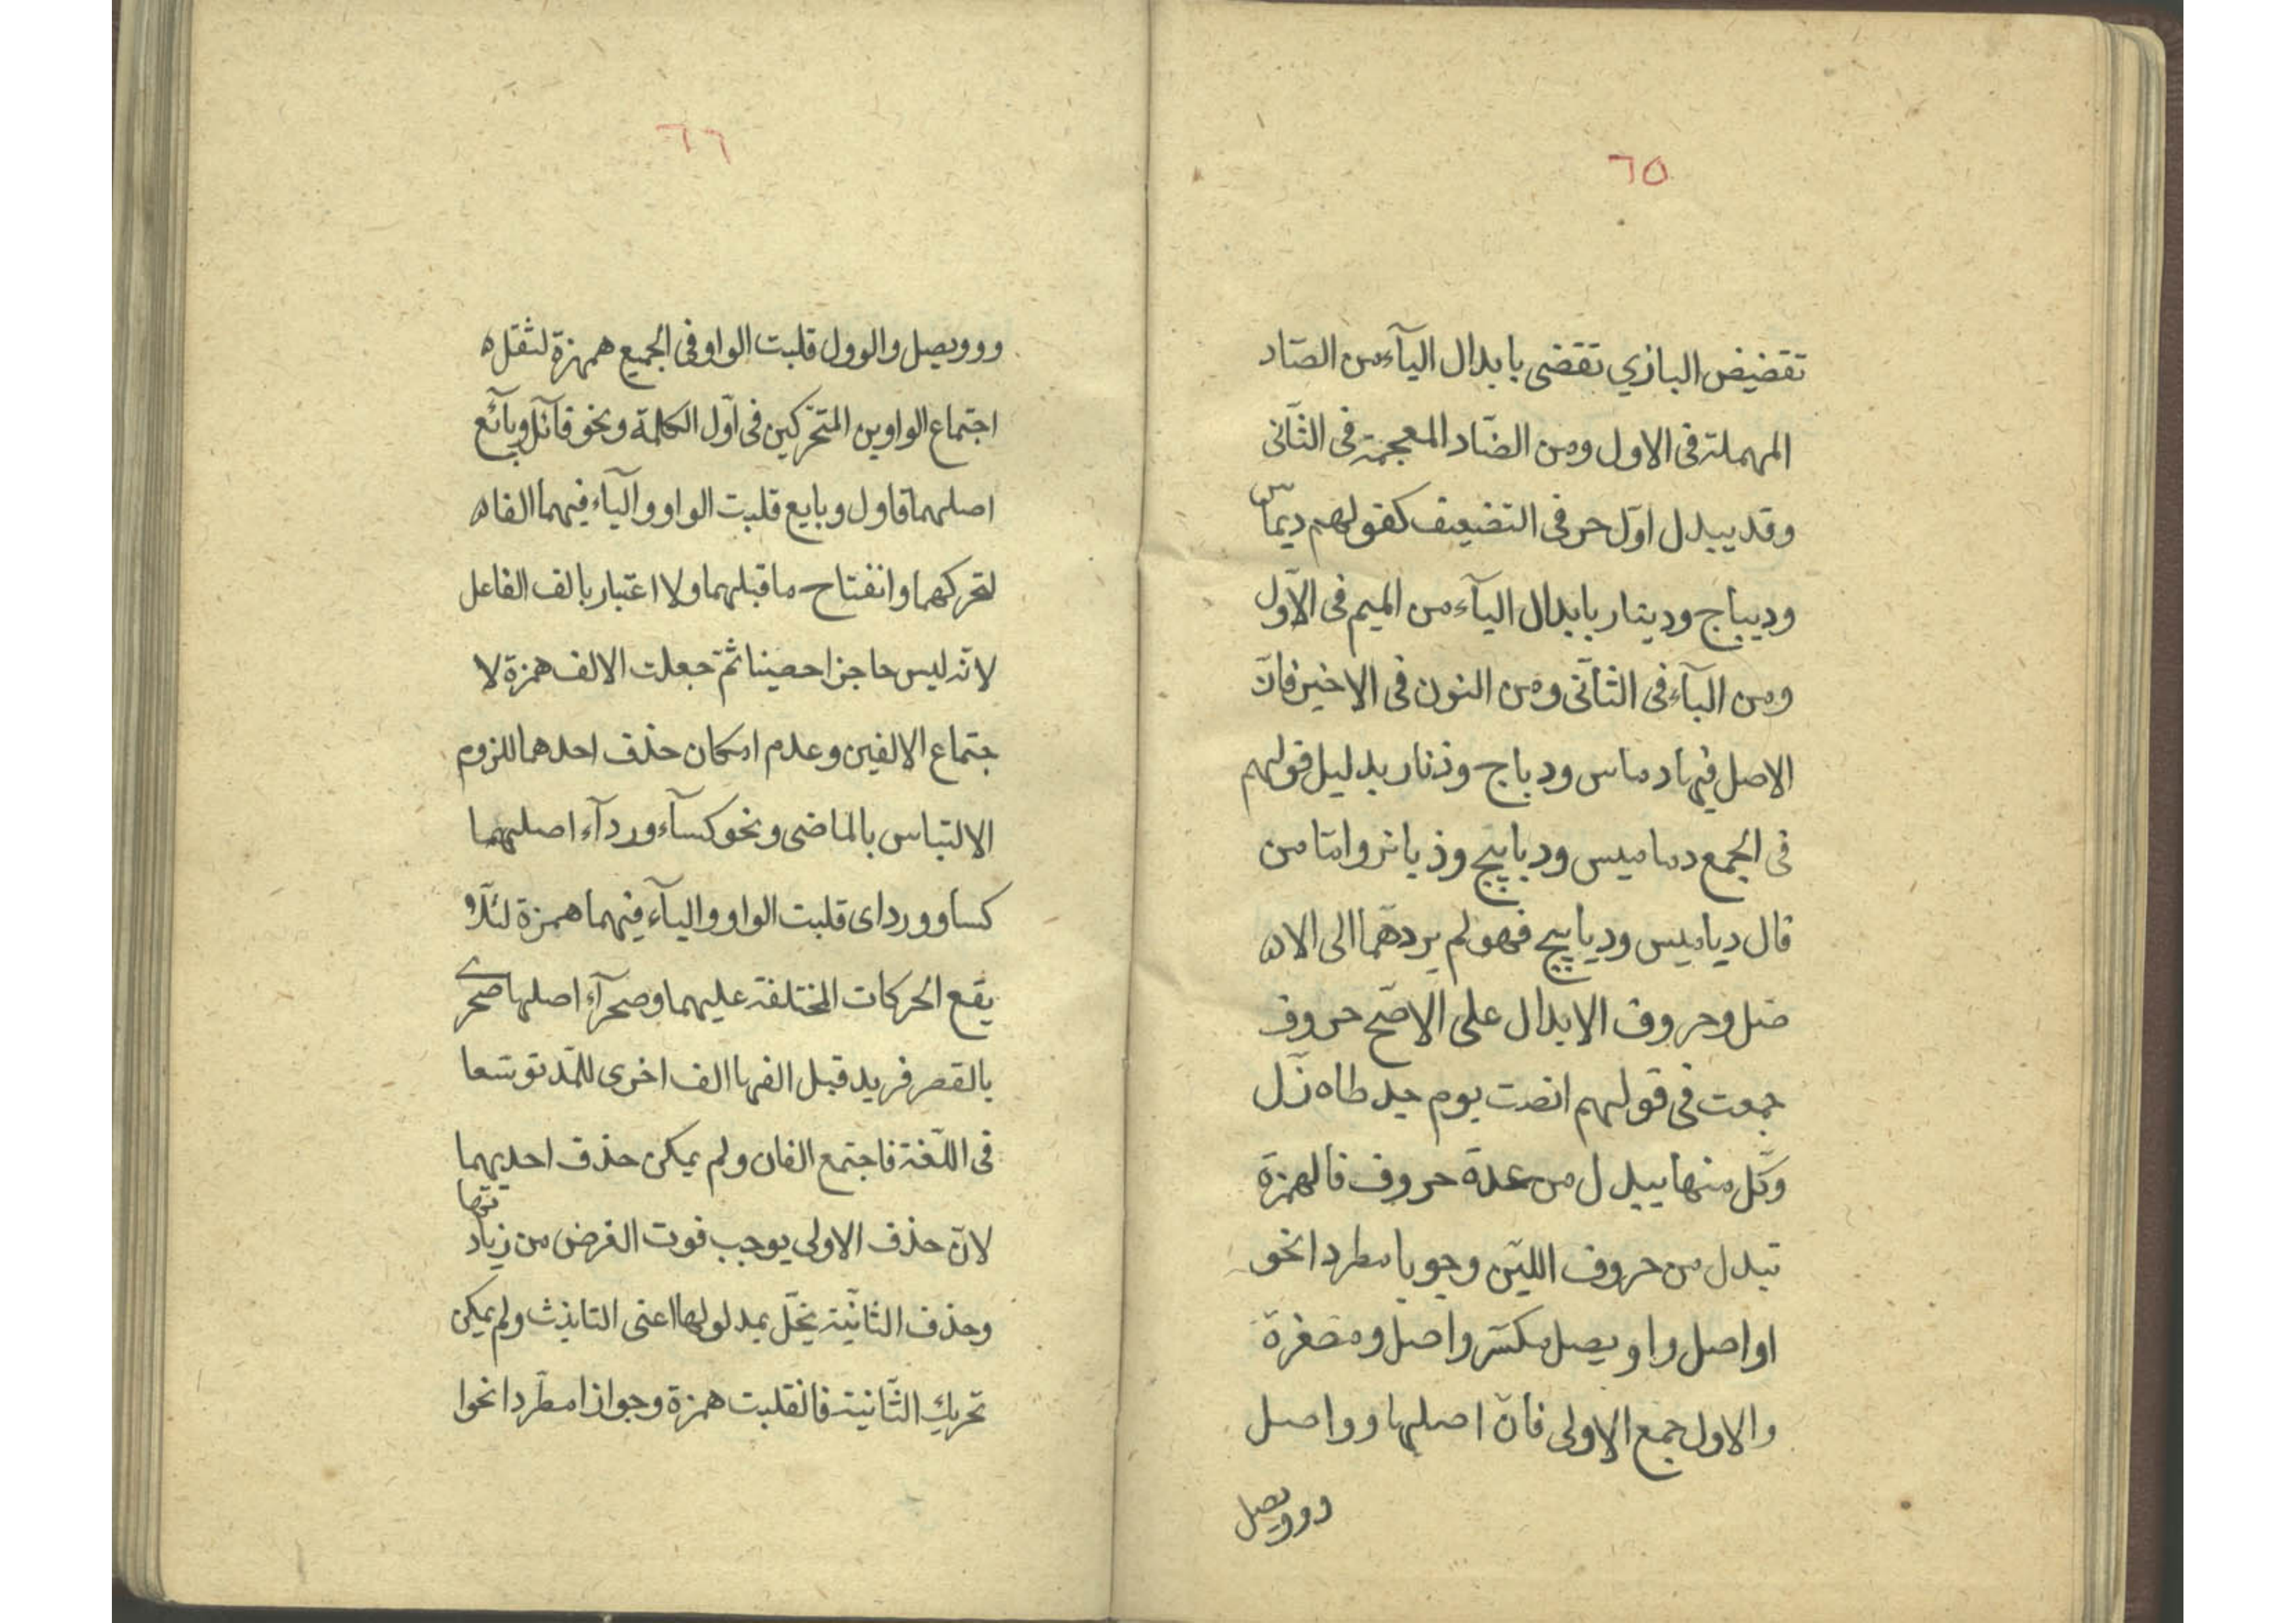 ٦٥
تقضيض البازي تقضى بابدال اليآء من الصّاد
المهملة فى الاول ومن الضّاد المعجمة فى الثّانى
وقد يبدل اوّل حرفى التضعيف كقولهم ديماس
وديباج ودينار بابدال اليآء من الميم فى الاوّل
ومن البآء فى الثّانى ومن النون فى الاخير فانّ
الاصل فيها دماس ودباج وذنار بدليل قولهم
فى الجمع دماميس ودبابيج وذيانر وامّا من
قال دياميس وديابيج فهو لم يردّهما الى الاه
صل وحروف الابدال على الاصّح حروف
جمعت فى قولهم انصت يوم جد طاه زلّ
وكلّ منها يبدل من عدة حروف فالهمزة
تبدل من حروف اللين وجوبا مطردا نحو
اواصل واويصل مكسّر واصل ومصغرة
والاول جمع الاولى فانّ اصلها وواصل
وويصل
٦٦
وووبصل والوول قلبت الواو فى الجميع همزة لثقل ه
اجتماع الواوين المتحركين فى اوّل الكلمة ونحو قآئل وبآئع
اصلهما قاول وبايع قلبت الواو واليآء فيهما الفا ه
لتحركهما وانفتاح ما قبلهما ولا اعتبار بالف الفاعل
لانّه ليس حاجزا حصينا ثمّ جعلت الالف همزة لا
جتماع الالفين وعدم امكان حذف احدهما للزوم
الالتباس بالماضى ونحو كسآء وردآء اصلهما
كساو ورداى قلبت الواو واليآء فيهما همزة لئلّا و
يقع الحركات المختلفة عليهما وصحرآء اصلها صحرى
بالقصر فزيد قبل الفها الف اخرى للمّد توسّعا
فى اللّغة فاجتمع الفان ولم يمكن حذف احديهما
لانّ حذف الاولى يوجب فوت الغرض من زيادتها
وحذف الثانيّة يخلّ بمدلولها اعنى التانيث ولم يمكن
تحريك الثّانية فانقلبت همزة وجوازا مطّردا نحوا